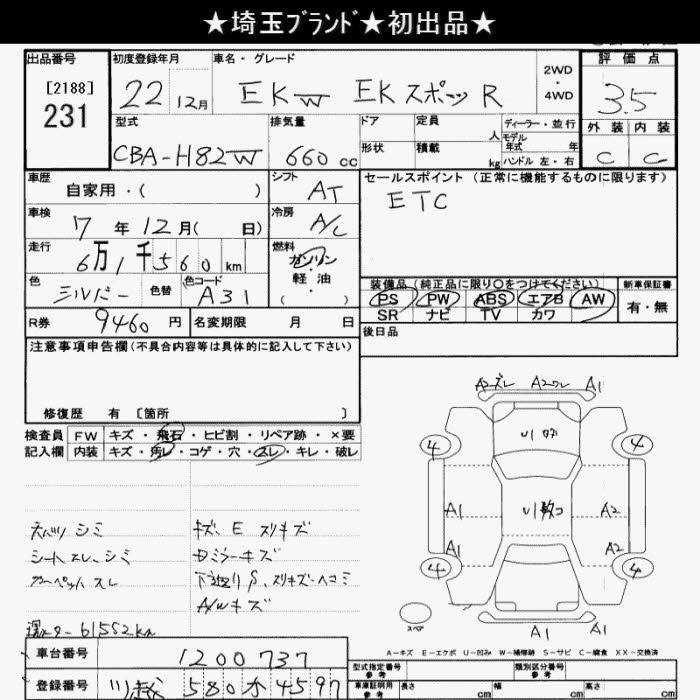 ★埼玉ﾌﾞﾗﾝﾄﾞ★初出品★
出品番号
[2188]
231
初度登録年月
22 12月
車名・グレード
EKW EKスポーツR
2WD
・
4WD
評価点
3.5
外装 内装
C C
型式
CBA-H82W
排気量
660cc
ドア
形状
定員
人
積載
kg
ディーラー・並行
モデル
年式 年
ハンドル 左・右
車歴
自家用・( )
シフト
AT
セールスポイント (正常に機能するものに限ります)
ETC
車検
7年12月( 日)
冷房
A/C
走行
6万1千560km
燃料
ガソリン
・
軽油
( )
色
シルバー
色替
色コード
A31
装備品(純正品に限り○をつけてください)
PS PW ABS エアB AW
SR ナビ TV カワ
新車保証書
有・無
R券
9460円
名変期限 月 日
後日品
注意事項申告欄(不具合内容等は具体的に記入して下さい)
修復歴 有 [箇所 ]
検査員
記入欄
FW キズ・飛石・ヒビ割・リペア跡・×要
内装 キズ・汚レ・コゲ・穴・スレ・キレ・破レ
シミ
シートスレ、シミ
カーペットスレ
メーター61552km
キズ、E スリキズ
ミラーキズ
スリキズ・ヘコミ
A/Wキズ
A2ズレ A2ワレ A1
4 4
U1
U1
A1 A2
A1 A2
4 4
スペア
A1 A1
A-キズ E-エクボ U-凹み W-補修跡 S-サビ C-腐食 XX-交換済
車台番号
1200737
登録番号
川越 580 4597
型式指定番号
参考
類別区分番号
参考
車庫証明用
参考
長さ cm
幅 cm
高さ cm